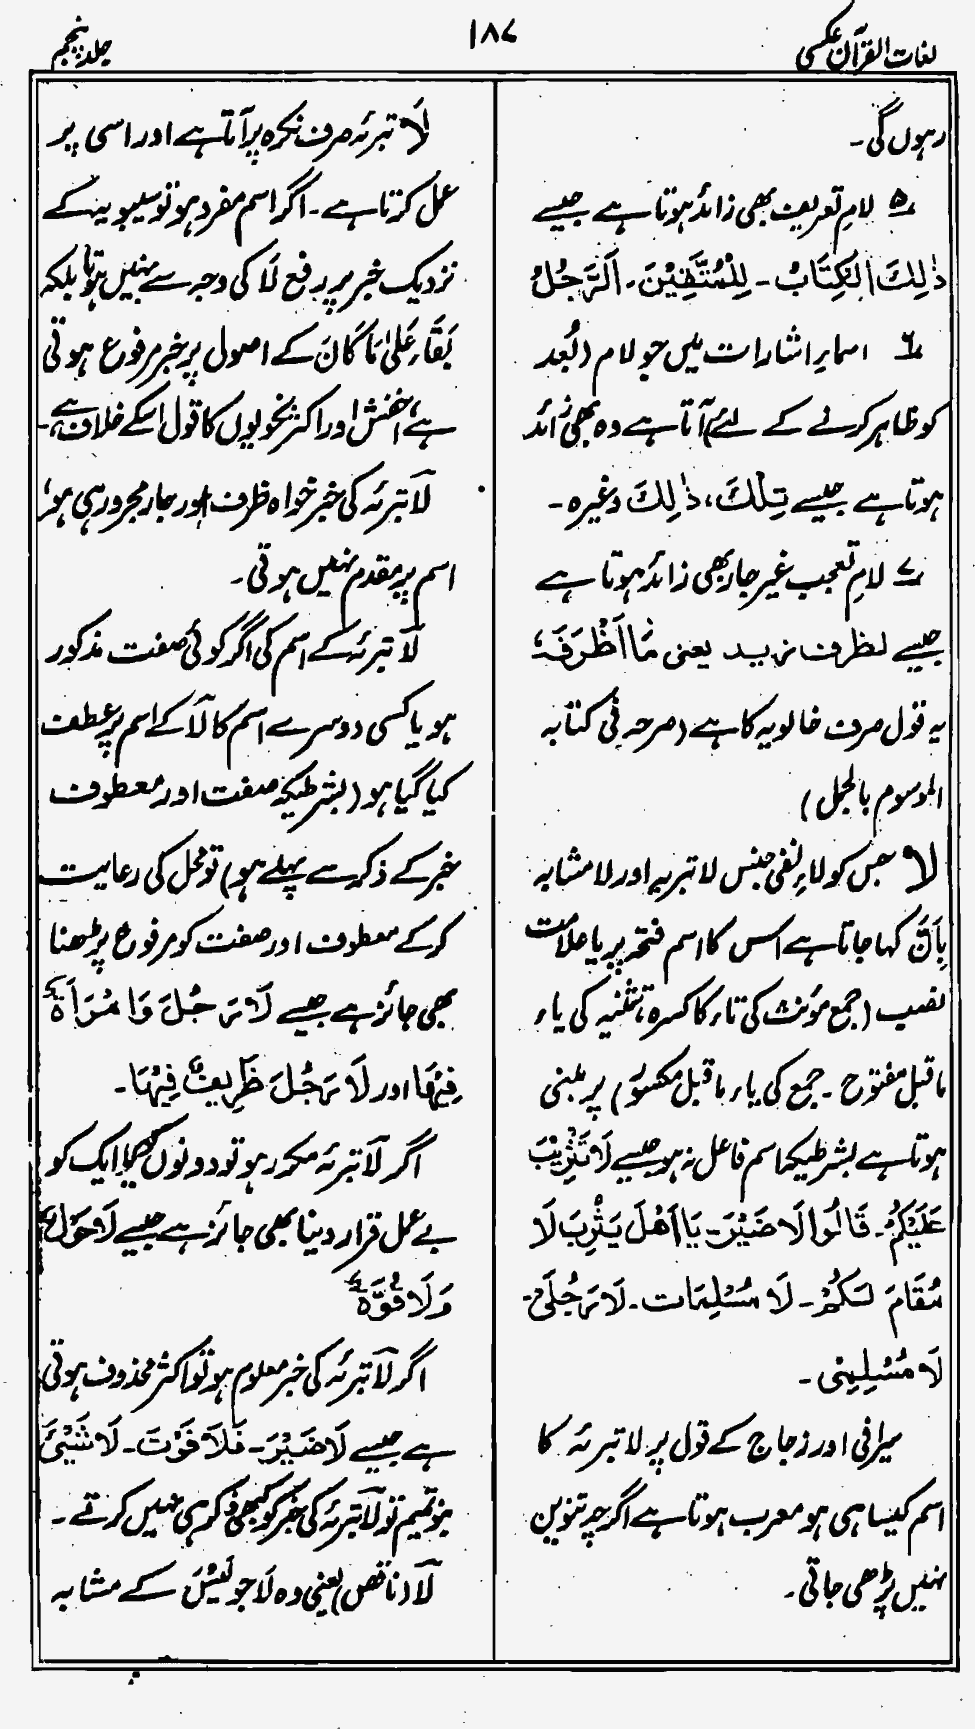 لغات القرآن عکسی
۱۸۷
جلد پنجم
رہوں گی۔
۵ لامِ تعریف بھی زائد ہوتا ہے جیسے
ذٰلِكَ الْكِتَابُ۔ لِلْمُتَّقِيْنَ۔ اَلرَّجُلُ
۶ اسماءِ اشارات میں جو لام (بُعد
کو ظاہر کرنے کے لئے) آتا ہے وہ بھی زائد
ہوتا ہے جیسے تِلْكَ، ذٰلِكَ وغیرہ۔
۷ لامِ تعجب غیر جار بھی زائد ہوتا ہے
جیسے لظرف زید یعنی مَا اَظْرَفَهٗ
یہ قول صرف خالویہ کا ہے (صرحہ فی کتابہ
الموسوم بالجمل)
لا جس کو لاءِ نفی جنس لا تبریہ اور لا مشابہ
بِاَنَّ کہا جاتا ہے اس کا اسم فتحہ پر یا علامت
نصب (جمع مؤنث کی تاء کا کسرہ، تثنیہ کی یاء
ماقبل مفتوح۔ جمع کی یاء ماقبل مکسور) پر مبنی
ہوتا ہے بشرطیکہ اسم فاعل نہ ہو جیسے لَا تَثْرِيْبَ
عَلَيْكُمْ۔ قَالُوْا لَا ضَيْرَ۔ يَا اَهْلَ يَثْرِبَ لَا
مُقَامَ لَكُمْ۔ لَا مُسْلِمَات۔ لَا رَجُلَىْ۔
لَا مُسْلِمِىْ۔
سیرافی اور زجاج کے قول پر لا تبرئہ کا
اسم کیسا ہی ہو معرب ہوتا ہے اگرچہ تنوین
نہیں پڑھی جاتی۔
لَا تبرئہ صرف نکرہ پر آتا ہے اور اسی پر
عمل کرتا ہے۔ اگر اسم مفرد ہو تو سیبویہ کے
نزدیک خبر پر رفع لَا کی وجہ سے نہیں ہوتا بلکہ
بَقَاء عَلٰی مَا کَانَ کے اصول پر خبر مرفوع ہوتی
ہے، اخفش اور اکثر نحویوں کا قول اسکے خلاف ہے۔
لَا تبرئہ کی خبر خواہ ظرف اور جار مجرور ہی ہو،
اسم پر مقدم نہیں ہوتی۔
لَا تبرئہ کے اسم کی اگر کوئی صفت مذکور
ہو یا کسی دوسرے اسم کا لَا کے اسم پر عطف
کیا گیا ہو (بشرطیکہ صفت اور معطوف
خبر کے ذکر سے پہلے ہو) تو محل کی رعایت
کرکے معطوف اور صفت کو مرفوع پڑھنا
بھی جائز ہے جیسے لَا رَجُلَ وَامْرَأَةٌ
فِيْهَا اور لَا رَجُلَ ظَرِيْفٌ فِيْهَا۔
اگر لَا تبرئہ مکرر ہو تو دونوں کو یا ایک کو
بے عمل قرار دینا بھی جائز ہے جیسے لَا حَوْلٌ
وَلَا قُوَّةٌ
اگر لَا تبرئہ کی خبر معلوم ہو تو اکثر محذوف ہوتی
ہے جیسے لَا ضَيْرَ۔ فَلَا فَوْتَ۔ لَا شَيْئَ
بنو تمیم تو لَا تبرئہ کی خبر کو کبھی ذکر ہی نہیں کرتے۔
لَا (ناقص) یعنی وہ لَا جو لَيْسَ کے مشابہ